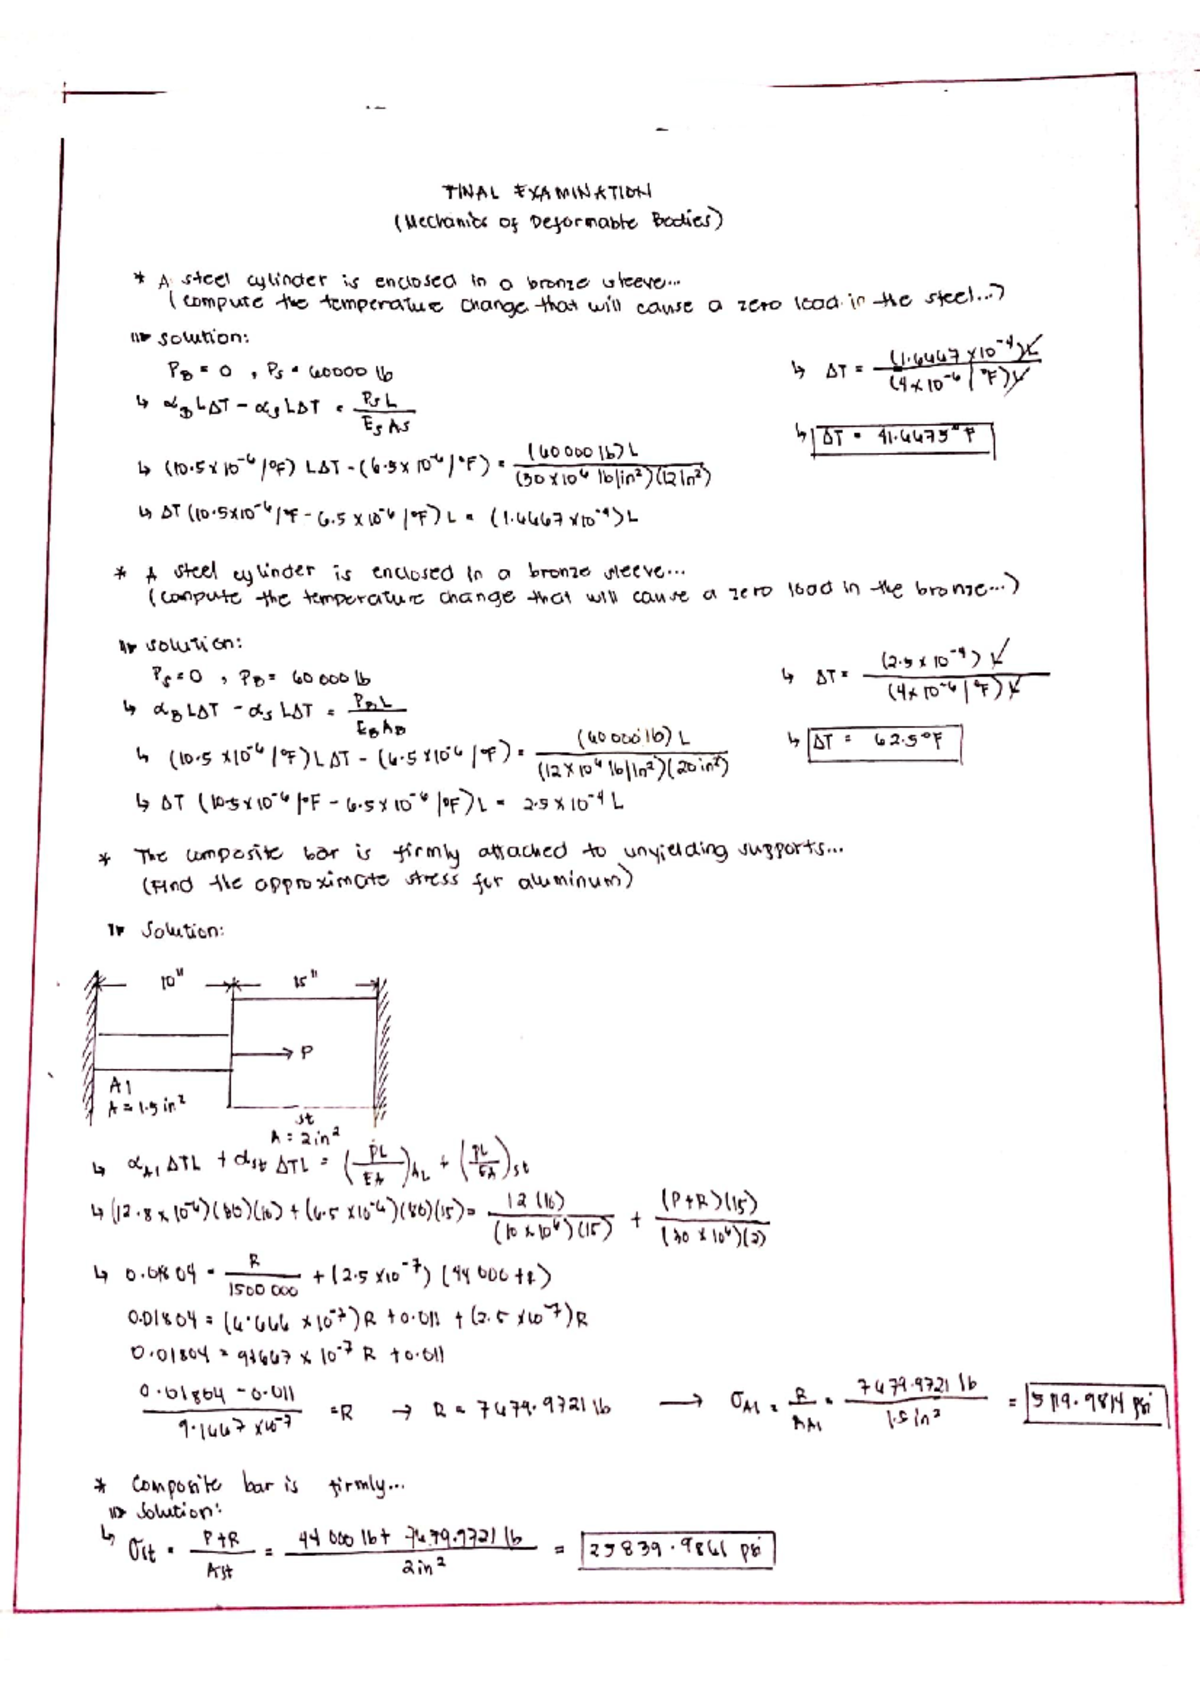 FINAL EXAMINATION
(Mechanics of Deformable Bodies)
* A steel cylinder is enclosed in a bronze sleeve...
(compute the temperature change that will cause a zero load in the steel...)
solution:
P_B = 0 , P_S = 60000 lb
↳ α_B LΔT - α_S LΔT = P_S L / E_S A_S
↳ (10.5 x 10^-6 /°F) LΔT - (6.5 x 10^-6 /°F) = (60 000 lb) L / (30 x 10^6 lb/in²)(12 in²)
↳ ΔT (10.5x10^-6 /°F - 6.5 x 10^-6 /°F) L = (1.6667 x10^-4) L
↳ ΔT = (1.6667 x10^-4) L / (4 x 10^-6 /°F) L
↳ ΔT = 41.6675° F
* A steel cylinder is enclosed in a bronze sleeve...
(compute the temperature change that will cause a zero load in the bronze...)
solution:
P_S = 0 , P_B = 60 000 lb
↳ α_B LΔT - α_S LΔT = P_B L / E_B A_B
↳ (10.5 x10^-6 /°F) LΔT - (6.5 x10^-6 /°F) = (60 000 lb) L / (12 x 10^6 lb/in²)(20 in²)
↳ ΔT (10.5 x 10^-6 /°F - 6.5 x 10^-6 /°F) L = 2.5 x 10^-4 L
↳ ΔT = (2.5 x 10^-4) L / (4x 10^-6 /°F) L
↳ ΔT = 62.5°F
* The composite bar is firmly attached to unyielding supports...
(Find the approximate stress for aluminum)
Solution:
10" 15"
P
A1
A = 1.5 in²
st
A = 2 in²
↳ α_A1 ΔTL + α_st ΔTL = (PL / EA)_AL + (PL / EA)_st
↳ (12.8 x 10^-6)(80)(10) + (6.5 x10^-6)(80)(15) = 12 (10) / (10 x 10^6)(15) + (P+R)(15) / (30 x 10^6)(2)
↳ 0.01804 = R / 1500 000 + (2.5 x10^-7) (44 000 + R)
0.01804 = (6.666 x 10^-7) R + 0.011 + (2.5 x10^-7) R
0.01804 = 9.1667 x 10^-7 R + 0.011
0.01804 - 0.011 / 9.1667 x10^-7 = R → R = 7679.9721 lb → σ_A1 = R / A_A1 = 7679.9721 lb / 1.5 in² = 5119.9814 psi
* Composite bar is firmly...
Solution:
↳ σ_st = P+R / A_st = 44 000 lb + 7679.9721 lb / 2in² = 25839.9861 psi